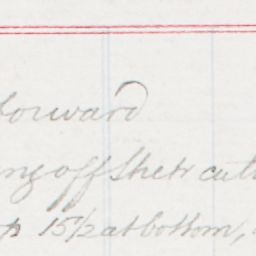 forward
ing off Shets cut
p 15½ at bottom,